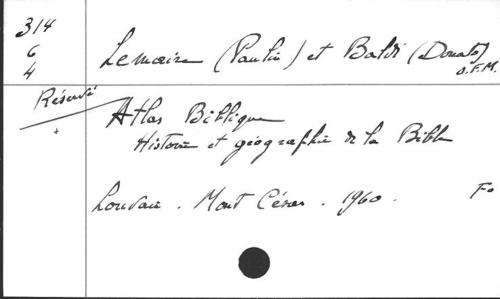 314
6
4
Lemaire (Paulin) et Baldi (Donato)
O.F.M.
Réservé
+
Atlas Biblique
Histoire et géographie de la Bible
Louvain . Mont César . 1960 . Fo